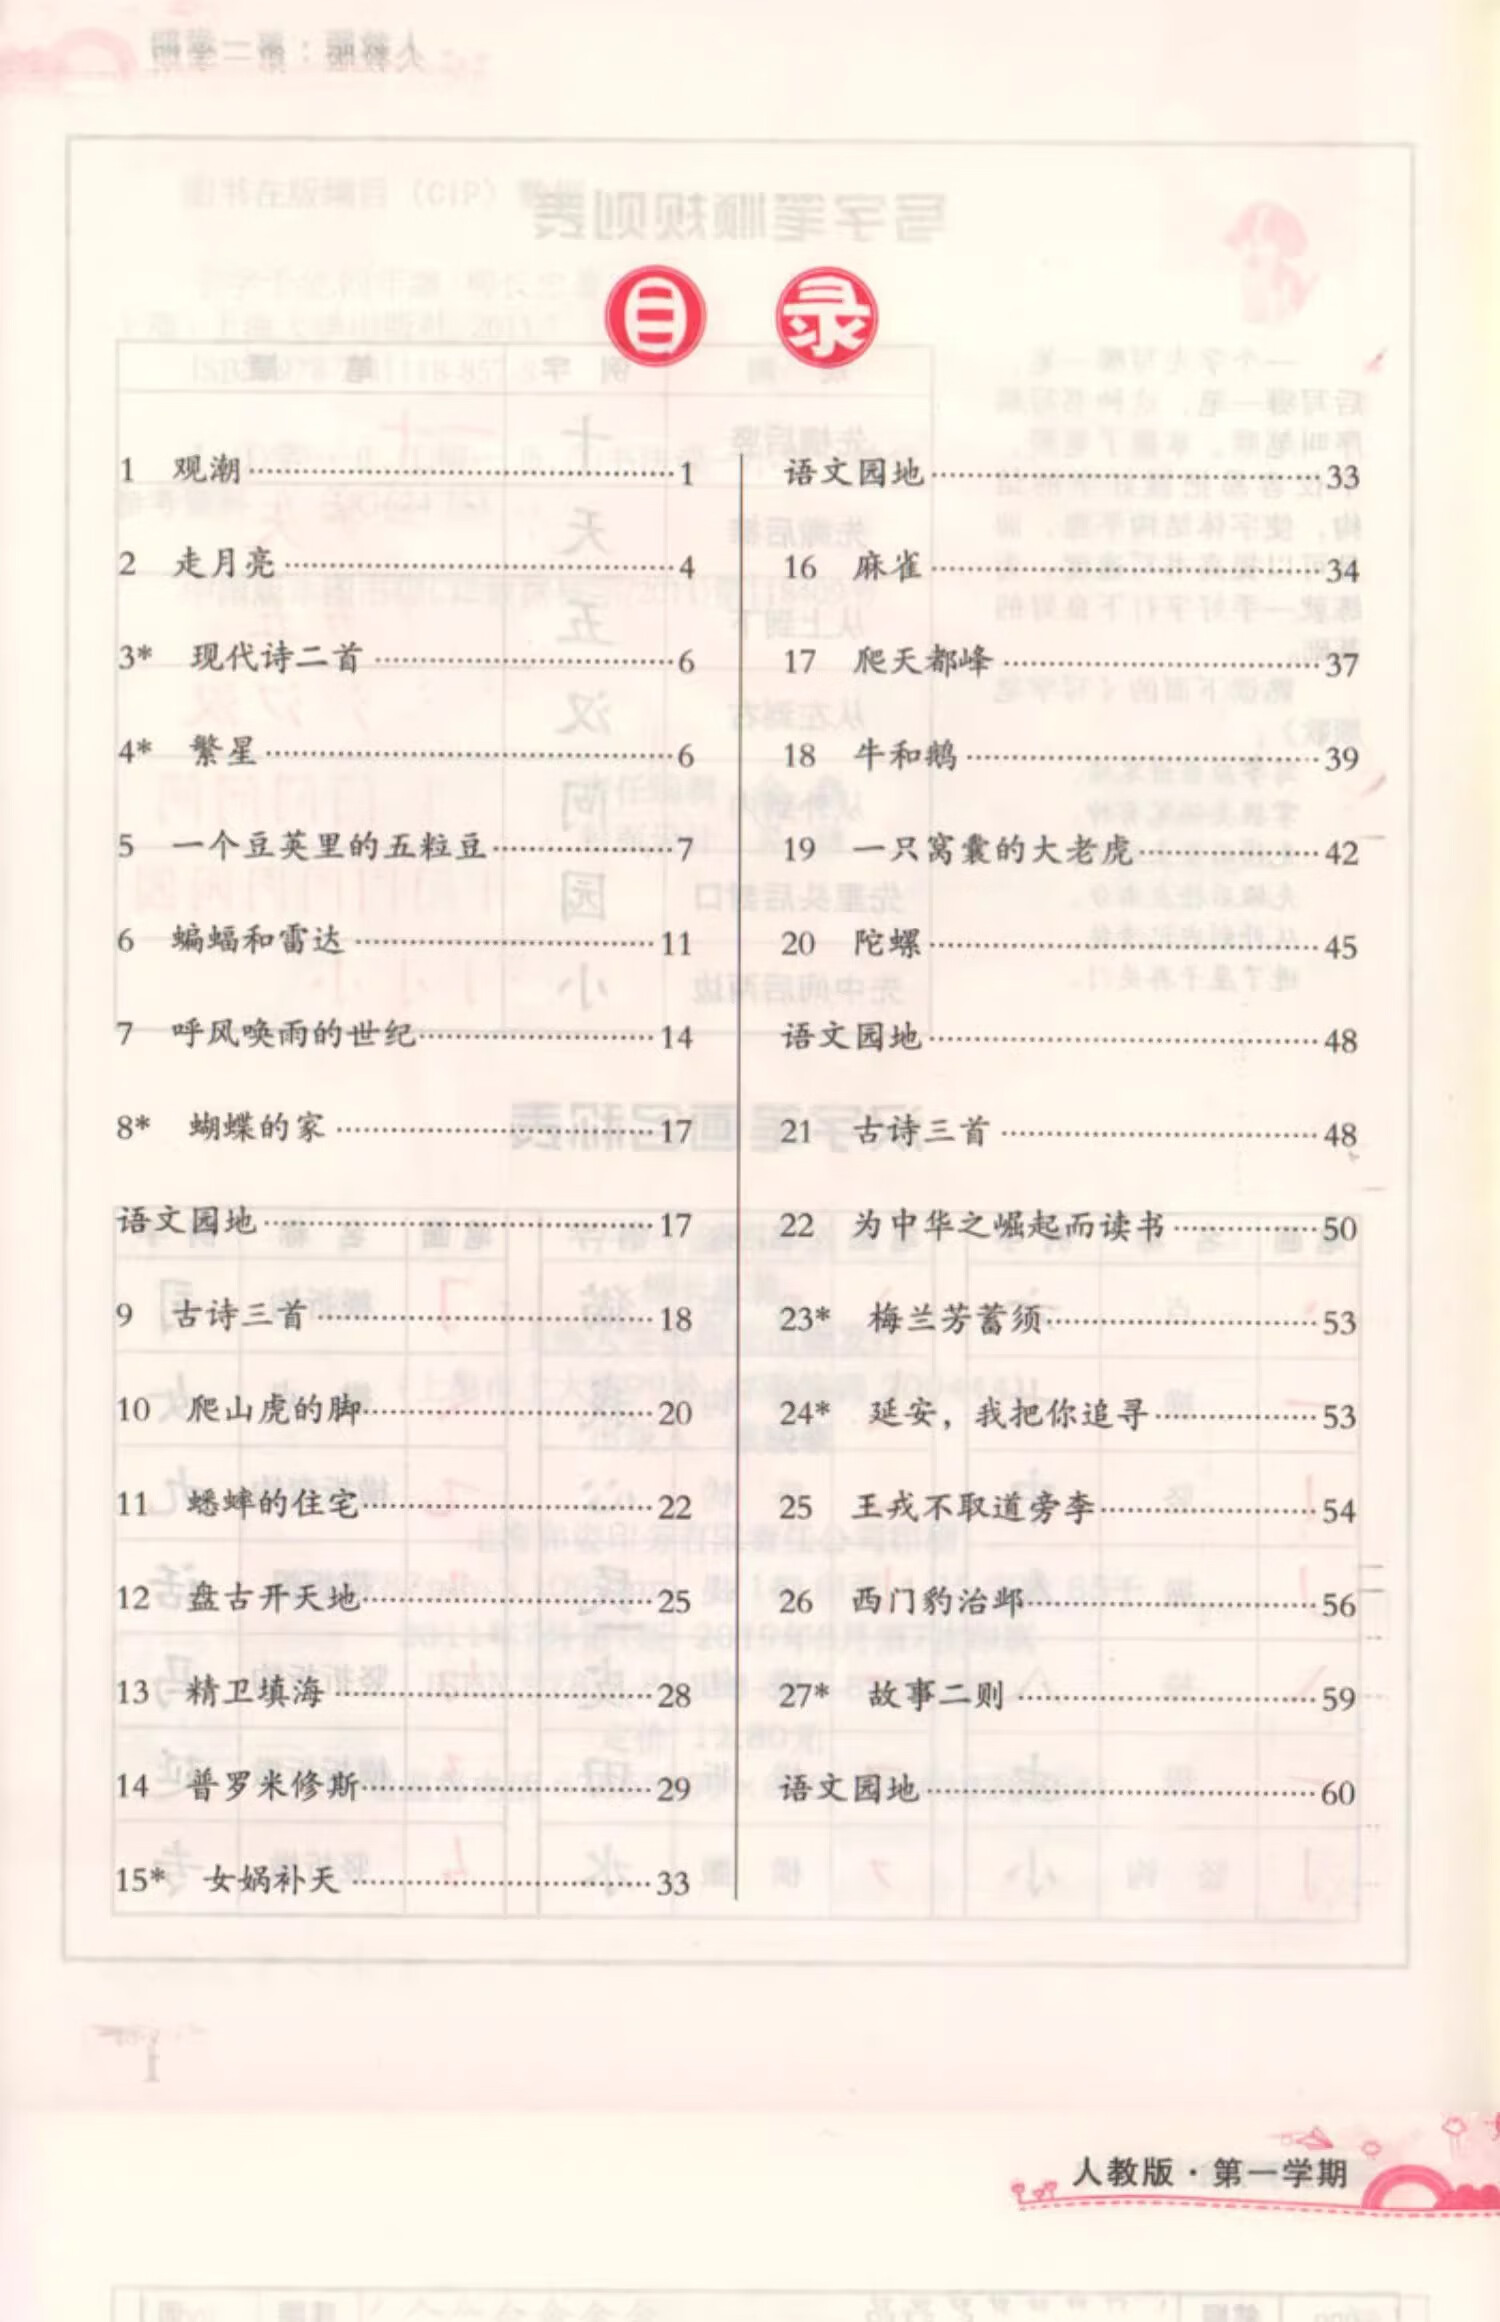 目 录
1 观潮……1
2 走月亮……4
3* 现代诗二首……6
4* 繁星……6
5 一个豆荚里的五粒豆……7
6 蝙蝠和雷达……11
7 呼风唤雨的世纪……14
8* 蝴蝶的家……17
语文园地……17
9 古诗三首……18
10 爬山虎的脚……20
11 蟋蟀的住宅……22
12 盘古开天地……25
13 精卫填海……28
14 普罗米修斯……29
15* 女娲补天……33
语文园地……33
16 麻雀……34
17 爬天都峰……37
18 牛和鹅……39
19 一只窝囊的大老虎……42
20 陀螺……45
语文园地……48
21 古诗三首……48
22 为中华之崛起而读书……50
23* 梅兰芳蓄须……53
24* 延安，我把你追寻……53
25 王戎不取道旁李……54
26 西门豹治邺……56
27* 故事二则……59
语文园地……60
人教版·第一学期